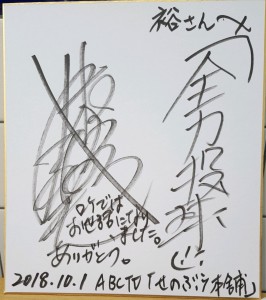 裕さんへ
全力投球!!
ロケでは
お世話になり
ました。
ありがとう。
2018.10.1 ABCTV「せのぶら本舗」